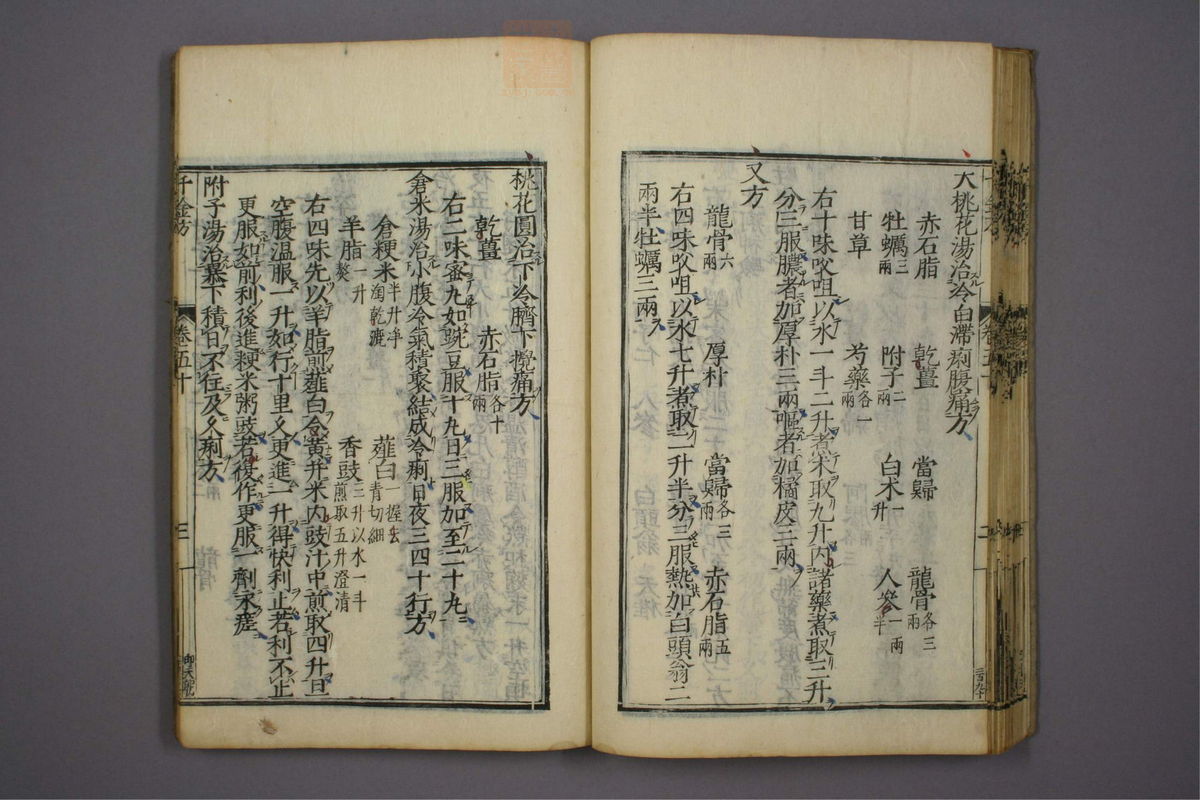 大桃花湯治冷白滯痢腹痛方
赤石脂 乾薑 當歸 龍骨各三兩
牡蠣三兩 附子二兩 白朮一升 人參一兩半
甘草 芍藥各一兩
右十味㕮咀以水一斗二升煮朮取九升内諸藥煮取三升
分三服膿者加厚朴三兩嘔者加橘皮三兩
又方
龍骨六兩 厚朴 當歸各三兩 赤石脂五兩
右四味㕮咀以水七升煮取二升半分三服熱加白頭翁二
兩半牡蠣三兩
桃花圓治下冷臍下攪痛方
乾薑 赤石脂各十兩
右二味蜜丸如豌豆服十丸日三服加至二十丸
倉米湯治小腹冷氣積聚結成冷痢日夜三四十行方
倉粳米半升淨淘乾漉 薤白一握去青切細
羊脂一升熬 香豉三升以水一斗煎取五升澄清
右四味先以羊脂煎薤白令黃并米内豉汁中煎取四升旦
空腹溫服一升如行十里久更進一升得快利止若利不止
更服如前利後進粳米粥豉若復作更服一劑永瘥
附子湯治暴下積日不住及久痢方
千金方 卷五十 三